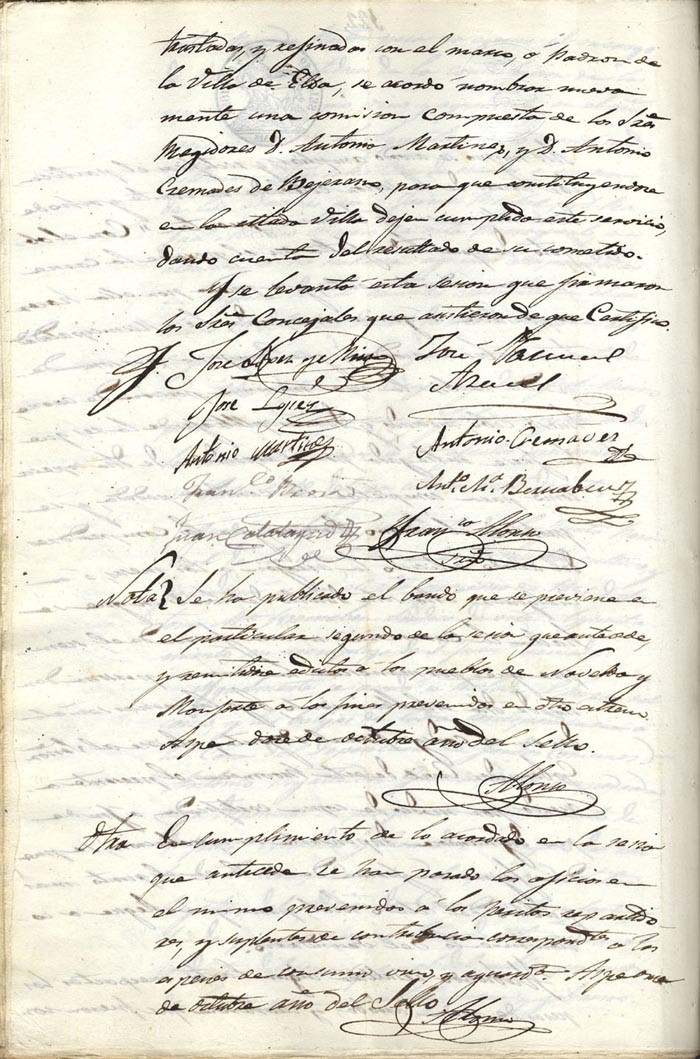 trastadas, y refinadas con el marco, ó padron de
la Villa de Elda, se acordó nombrar nueva
mente una comision compuesta de los Sres
Regidores D. Antonio Martinez, y D. Antonio
Cremades de Bejerano, para que constituyendose
en la citada Villa dejen cumplido este servicio,
dando cuenta del resultado de su cometido.
Y se levantó esta sesion que firmaron
los Sres Concejales que asistieron de que Certifico.
José Pascual
José Lopez
Antonio Martinez
Antonio Cremades
Anto Ma Bernabeu
Juan Calatayud
Franco Alonso
Srio
Nota} Se ha publicado el bando que se previene en
el particular segundo de la sesion que antecede,
y remitidose edictos a los pueblos de Novelda y
Monforte á los fines prevenidos en dho
Aspe doce de octubre año del Sello.
Alonso
Otra En cumplimiento de lo acordado en la sesion
que antecede se han pasado los oficios en
el mismo prevenidos á los peritos repartido
res, y suplentes de contribucion correspondte á las
especies de consumo vino, y aguardte. Aspe
de octubre año del Sello
Alonso